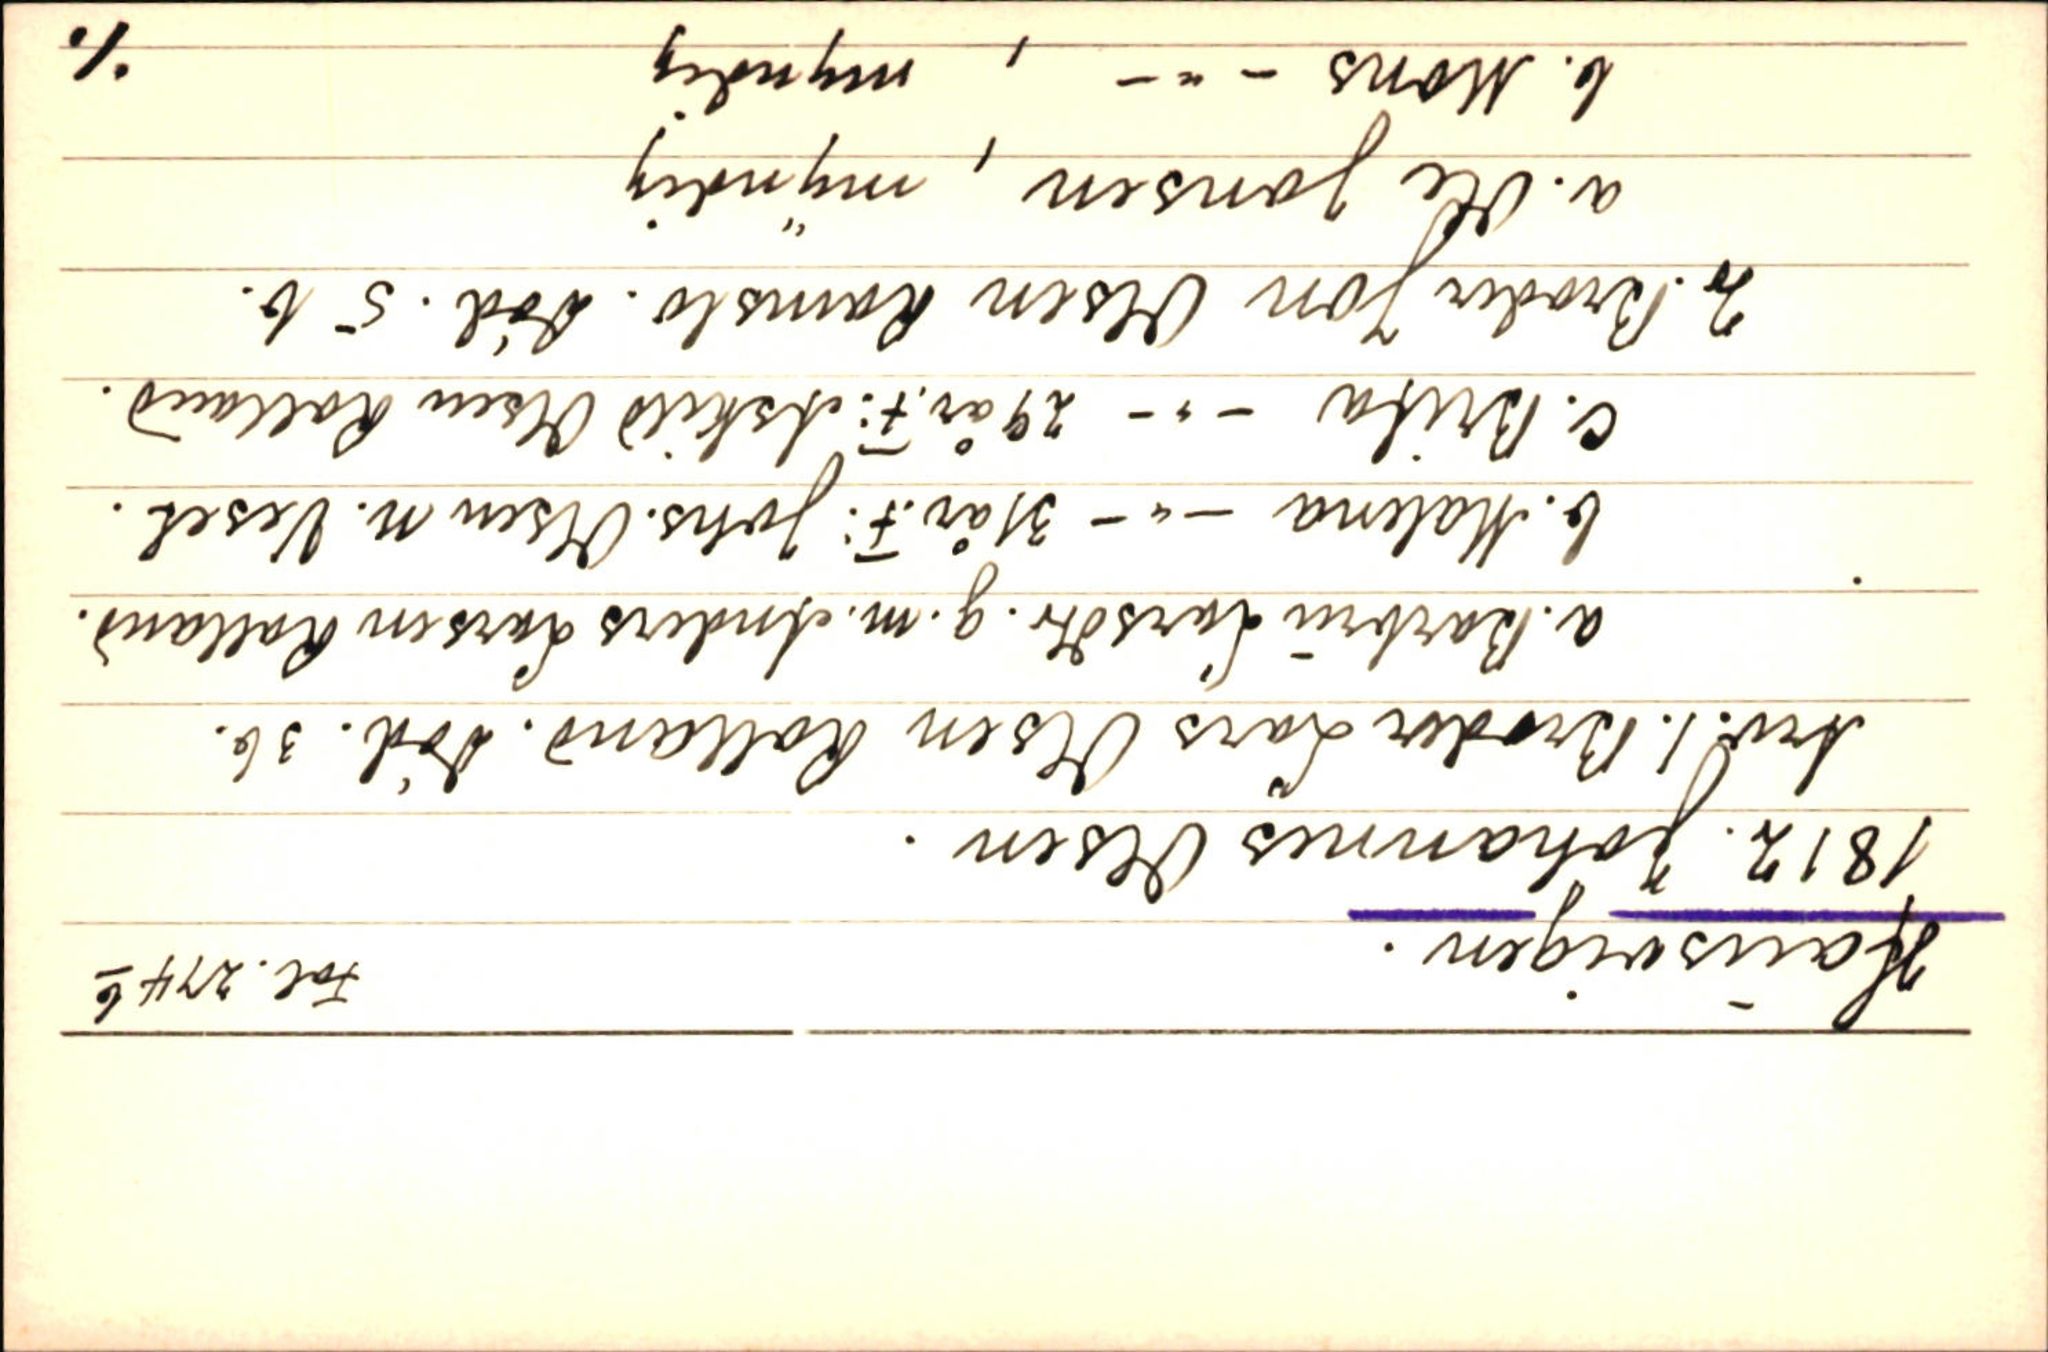 Haūsvigen. Fol. 274 b
1812. Johannes Olsen.
Arv: 1. Broder Lars Olsen Rolland. Död. 3 b.
a. Barbrū Larsdtr. g.m. Anders Larsen Rolland.
b. Malena -"- 31 år. F: Johs. Olsen N. Veset.
c. Brita -"- 29 år. F: Askild Olsen Rolland.
2. Broder Jon Olsen Ramslo. Död. 5 b.
a. Ole Jonsen, myndig
b. Mons -"-, myndig
./.